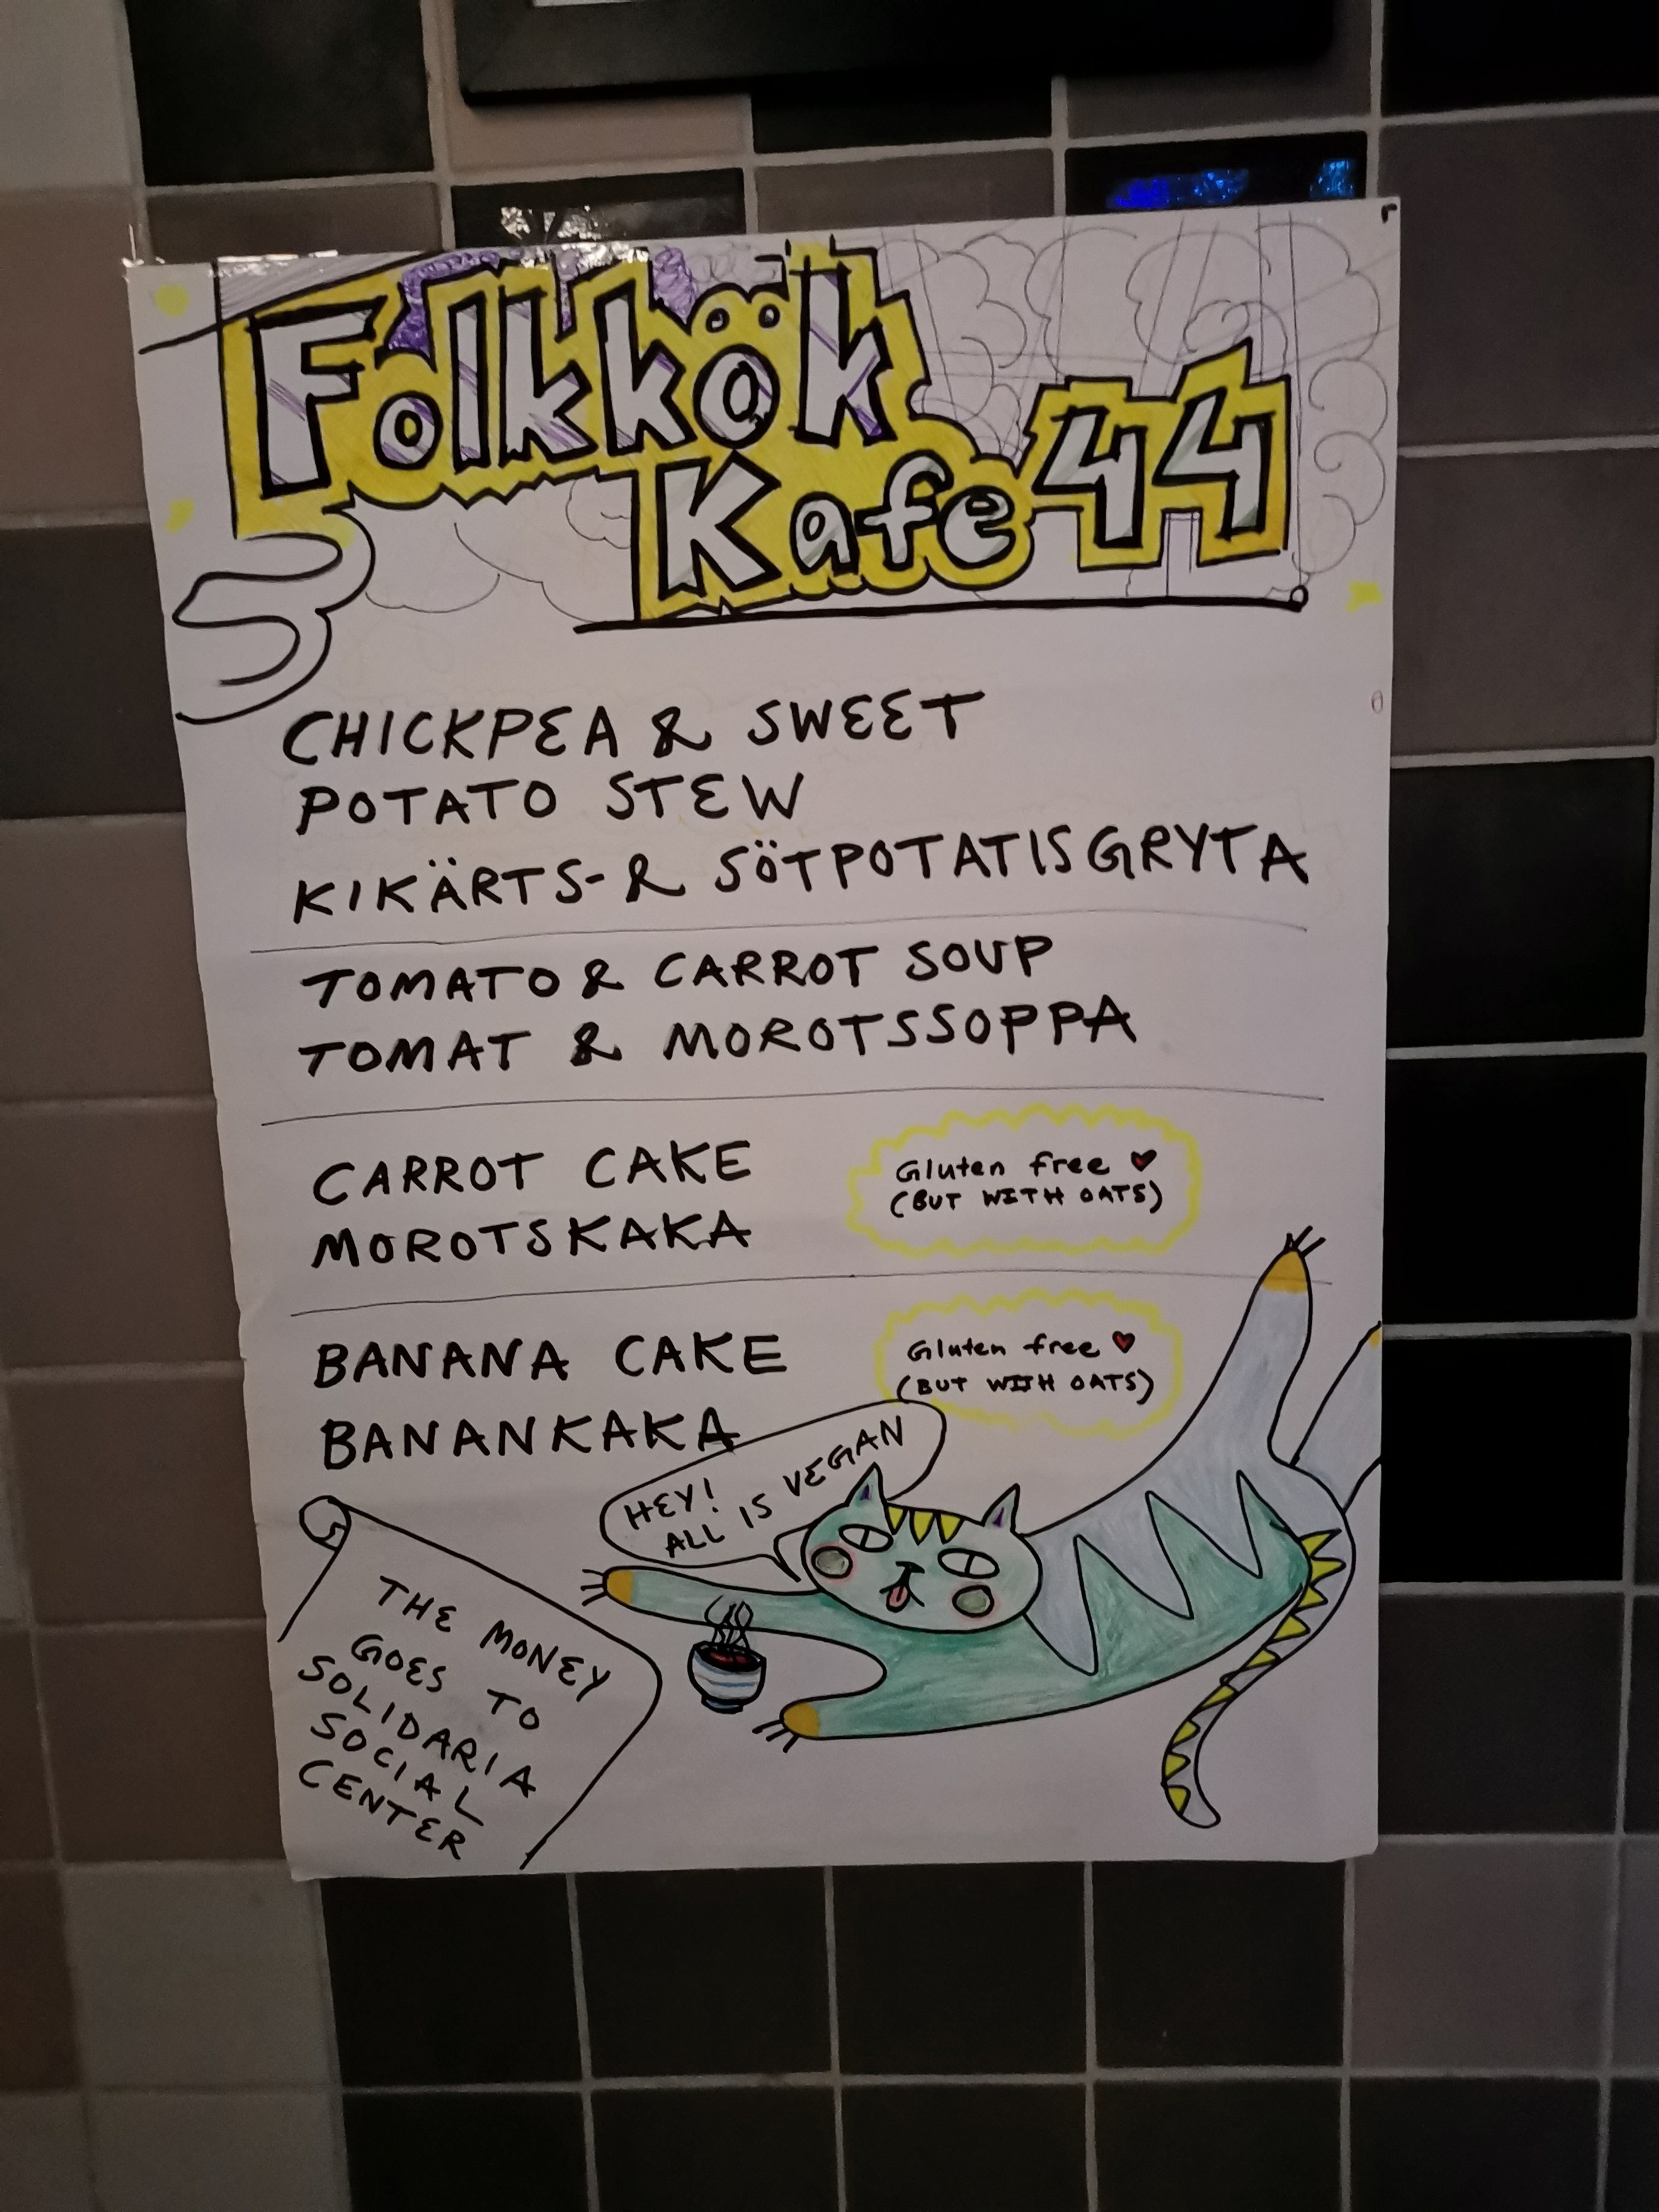 Folkkök
Kafe 44
CHICKPEA & SWEET
POTATO STEW
KIKÄRTS- & SÖTPOTATISGRYTA
TOMATO & CARROT SOUP
TOMAT & MOROTSSOPPA
CARROT CAKE
MOROTSKAKA
Gluten free ♥
(BUT WITH OATS)
BANANA CAKE
BANANKAKA
Gluten free ♥
(BUT WITH OATS)
HEY!
ALL IS VEGAN
THE MONEY
GOES TO
SOLIDARIA
SOCIAL
CENTER